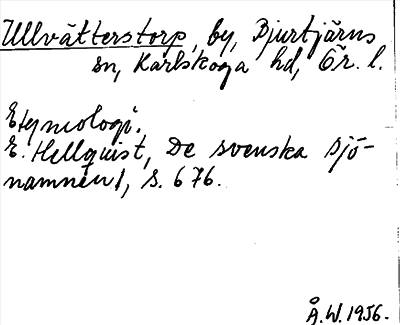 Ullvätterstorp, by, Bjurtjärns
sn, Karlskoga hd, Ör. l.
Etymologi.
E. Hellquist, De svenska sjö-
namnen 1, s. 676.
Å.W. 1956.